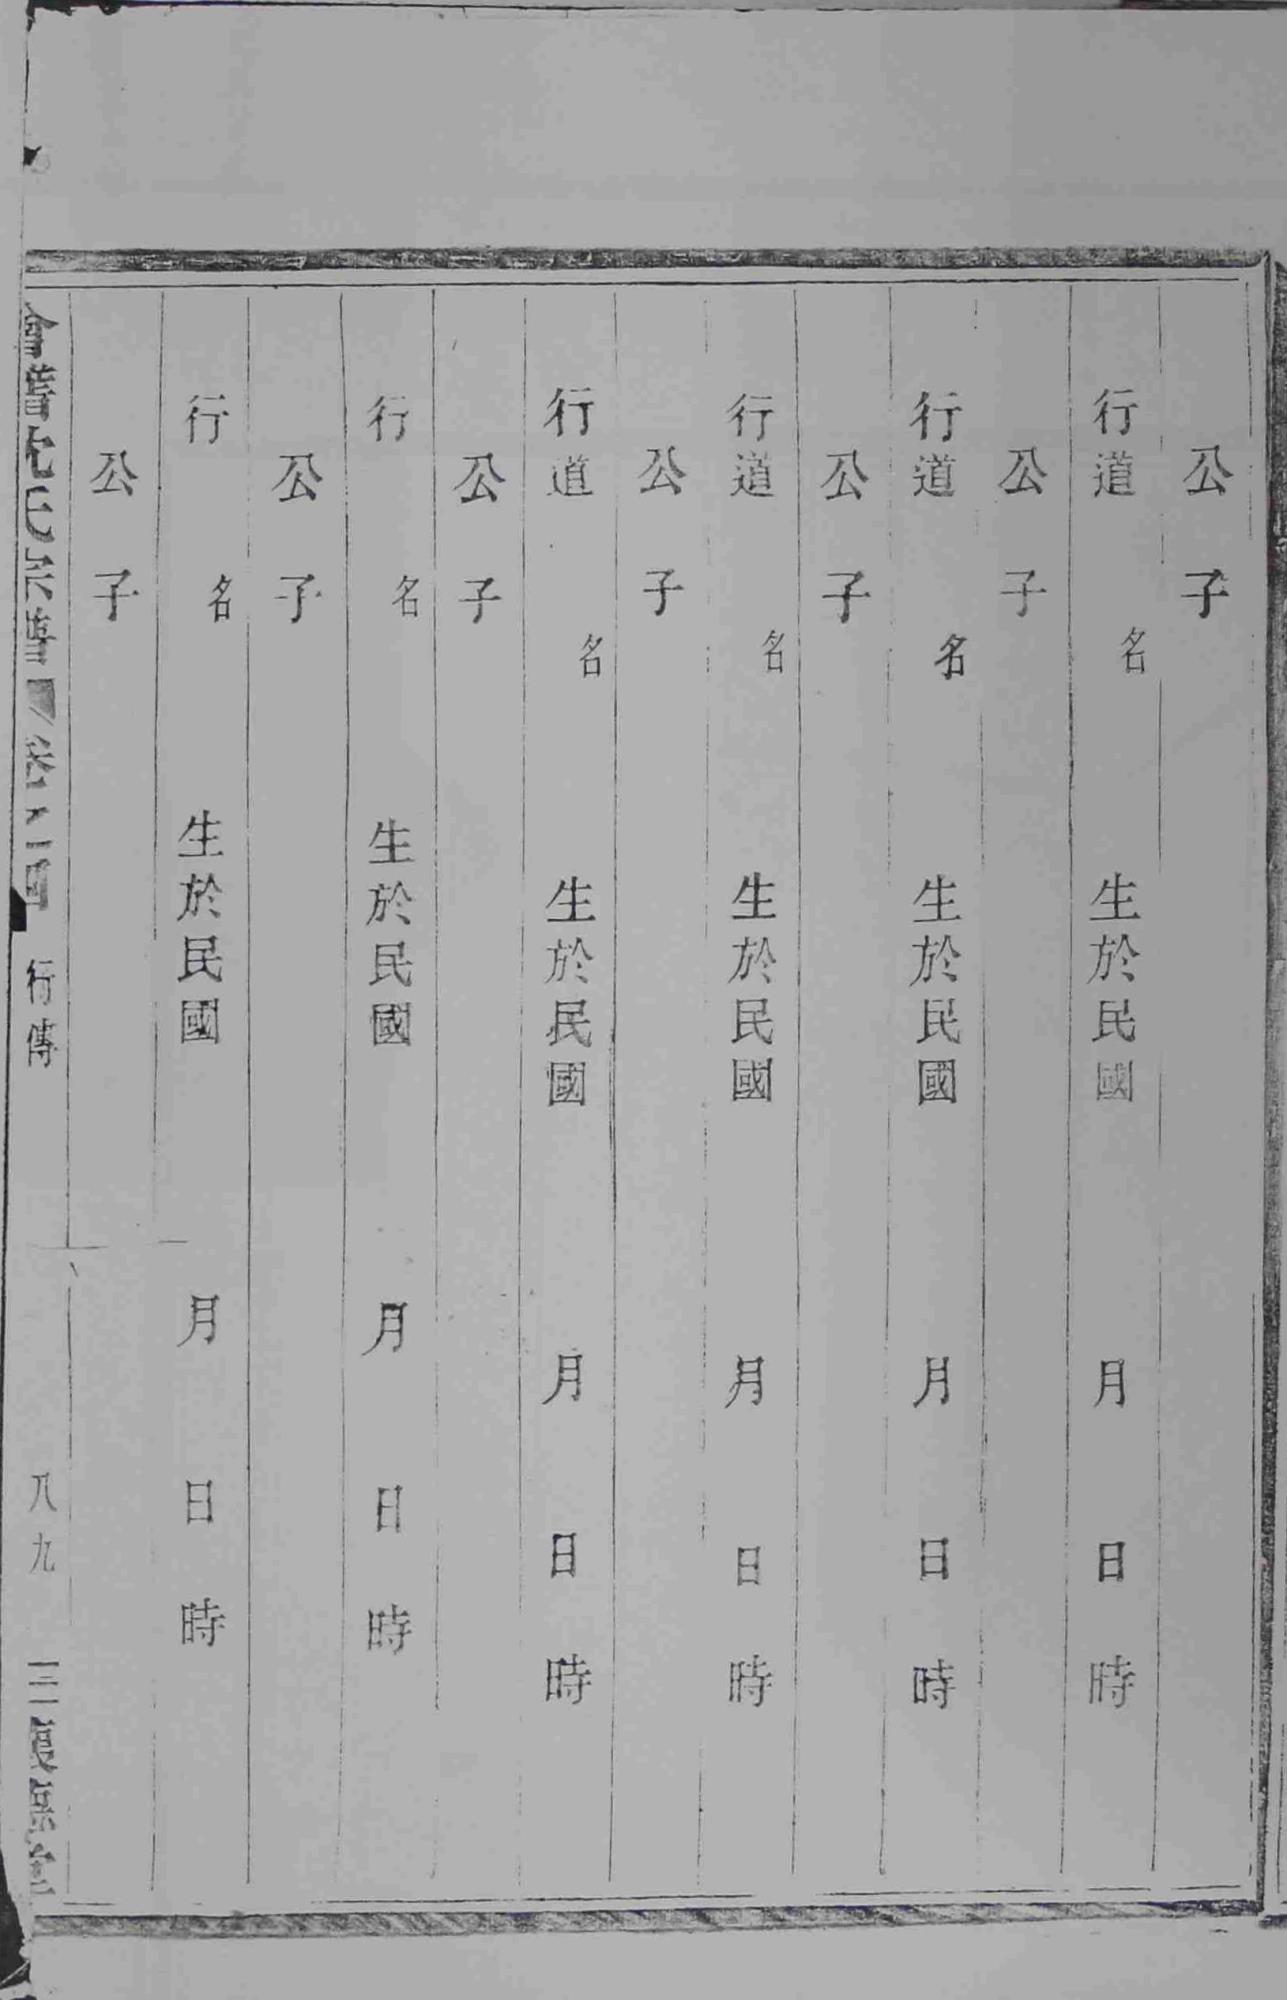 公子
行道 名 生於民國 月 日 時
公子
行道 名 生於民國 月 日 時
公子
行道 名 生於民國 月 日 時
公子
行道 名 生於民國 月 日 時
公子
行 名 生於民國 月 日 時
公子
行 名 生於民國 月 日 時
公子
會譜沈氏宗譜 卷 行傳 八九 三